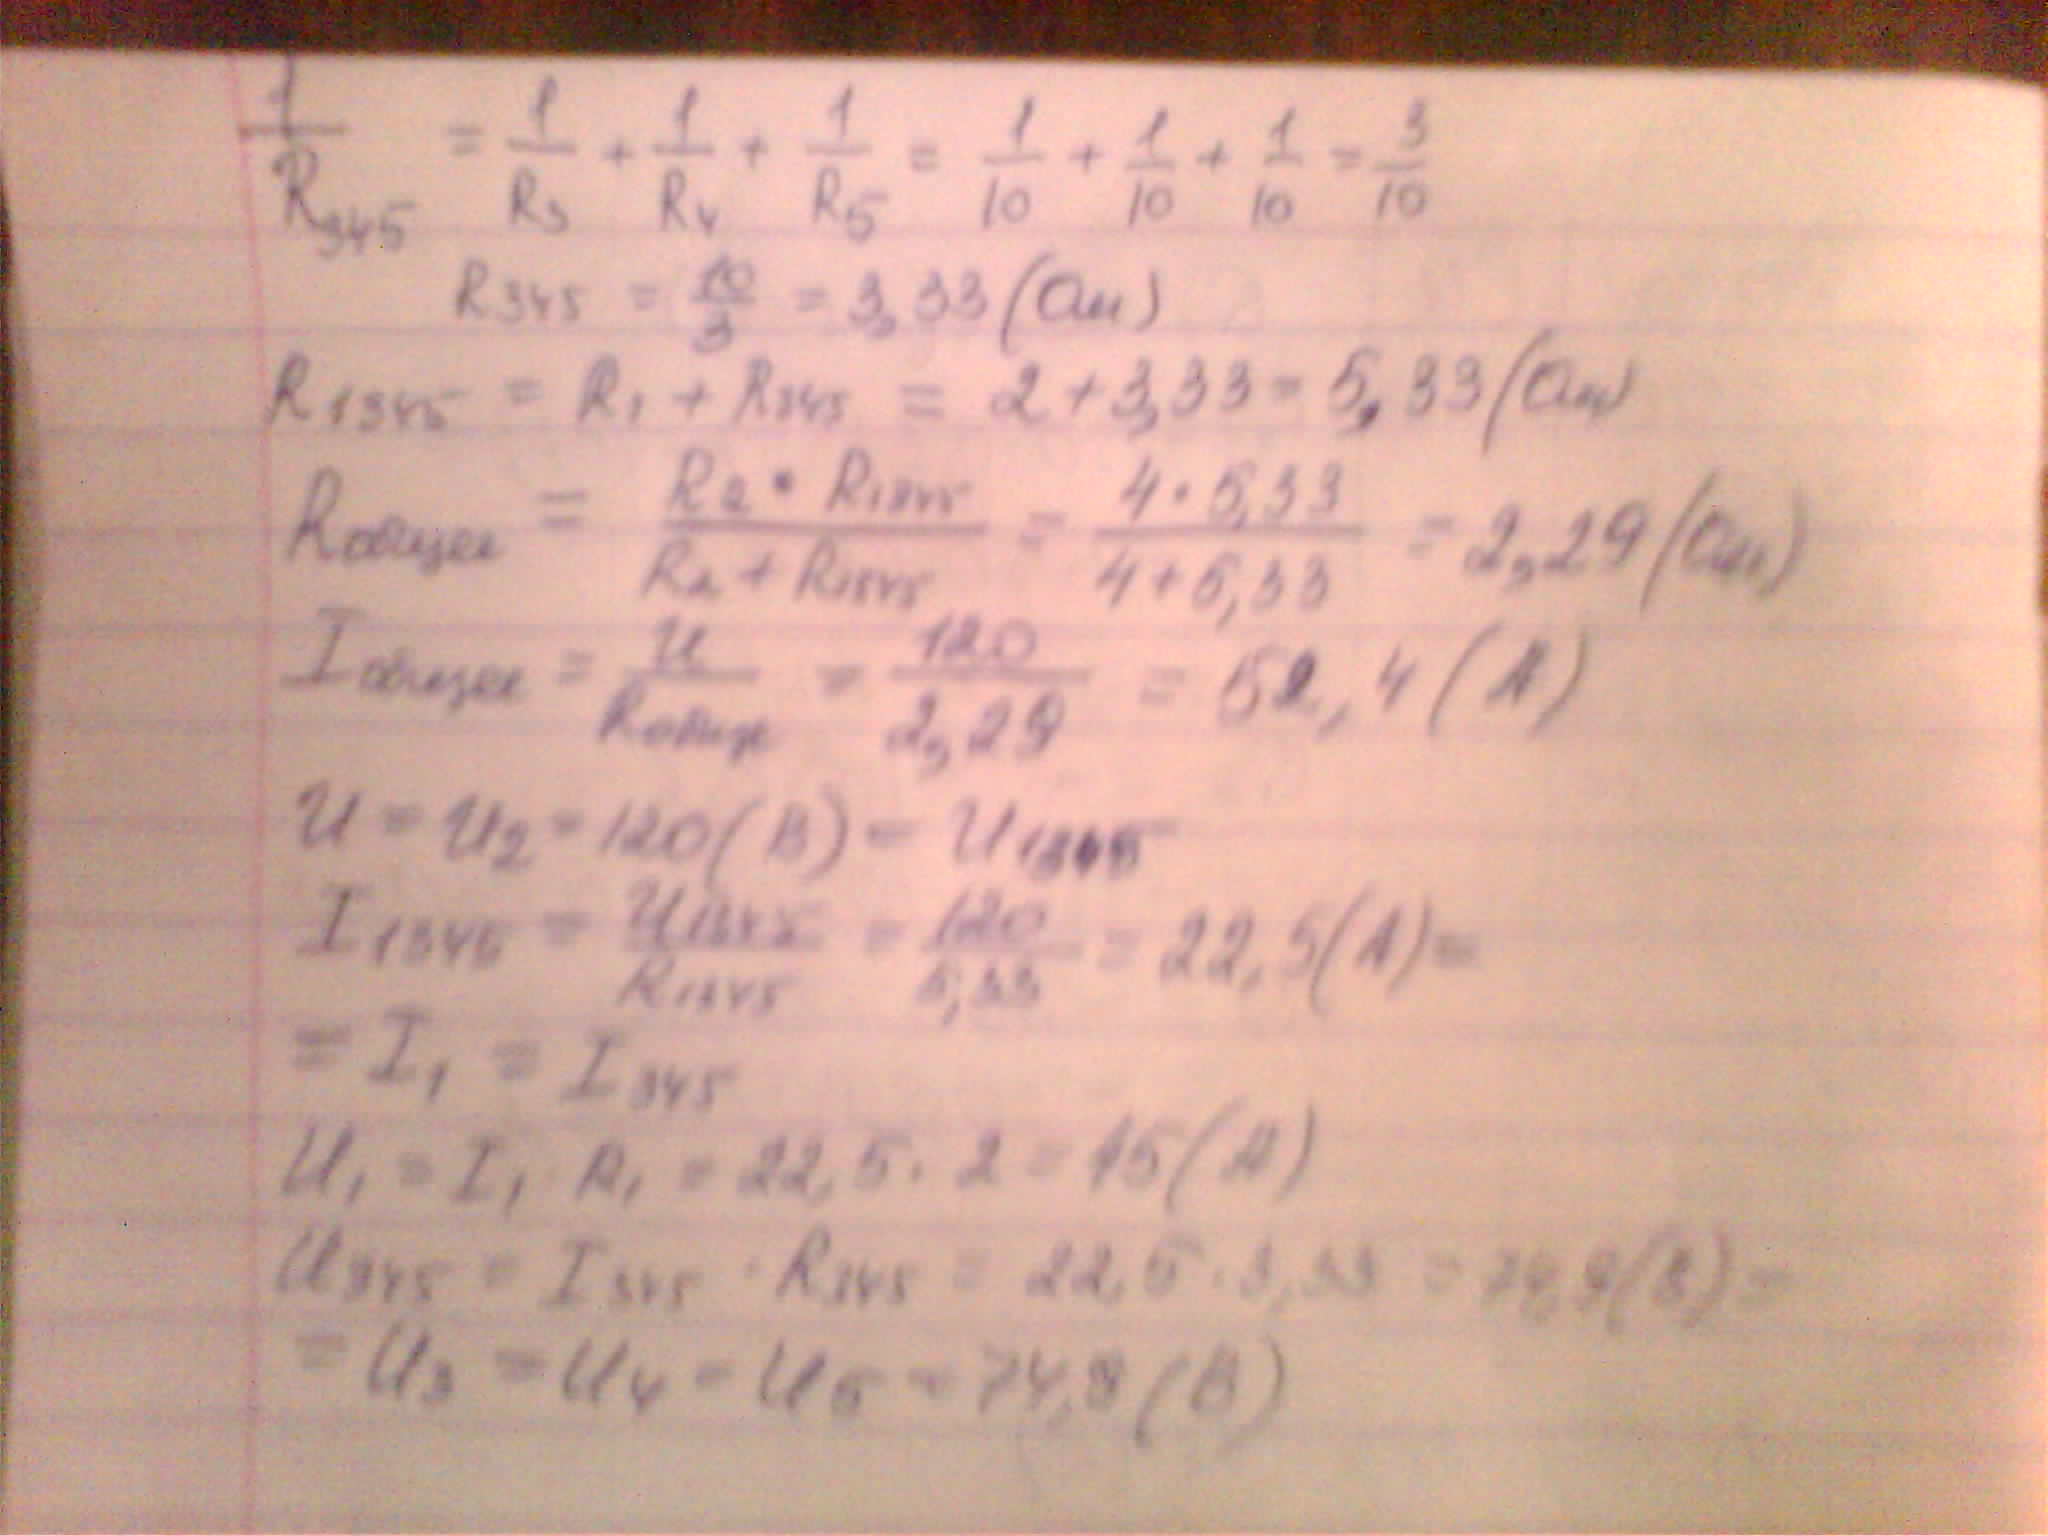 1/R345 = 1/R3 + 1/R4 + 1/R5 = 1/10 + 1/10 + 1/10 = 3/10
R345 = 10/3 = 3,33 (Ом)
R1345 = R1 + R345 = 2 + 3,33 = 5,33 (Ом)
Rобщее = R2 · R1345 / R2 + R1345 = 4 · 5,33 / 4 + 5,33 = 2,29 (Ом)
Iобщее = U / Rобще = 120 / 2,29 = 52,4 (А)
U = U2 = 120 (В) = U1345
I1345 = U1345 / R1345 = 120 / 5,33 = 22,5 (А) =
= I1 = I345
U1 = I1 · R1 = 22,5 · 2 = 45 (А)
U345 = I345 · R345 = 22,5 · 3,33 = 74,9 (В) =
= U3 = U4 = U5 = 74,9 (В)